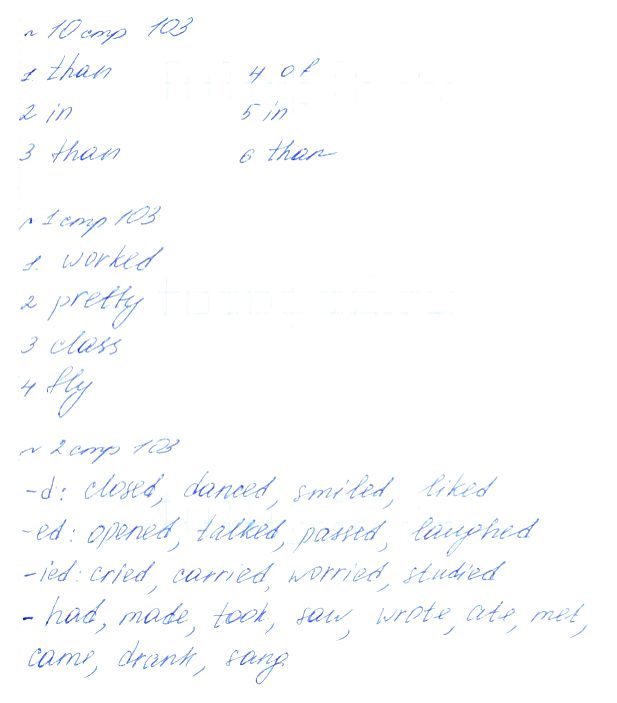 № 10 стр 103
1 than 4 of
2 in 5 in
3 than 6 than
№ 1 стр 103
1. worked
2 pretty
3 class
4 fly
№ 2 стр 103
-d: closed, danced, smiled, liked
-ed: opened, talked, passed, laughed
-ied: cried, carried, worried, studied
- had, made, took, saw, wrote, ate, met,
came, drank, sang